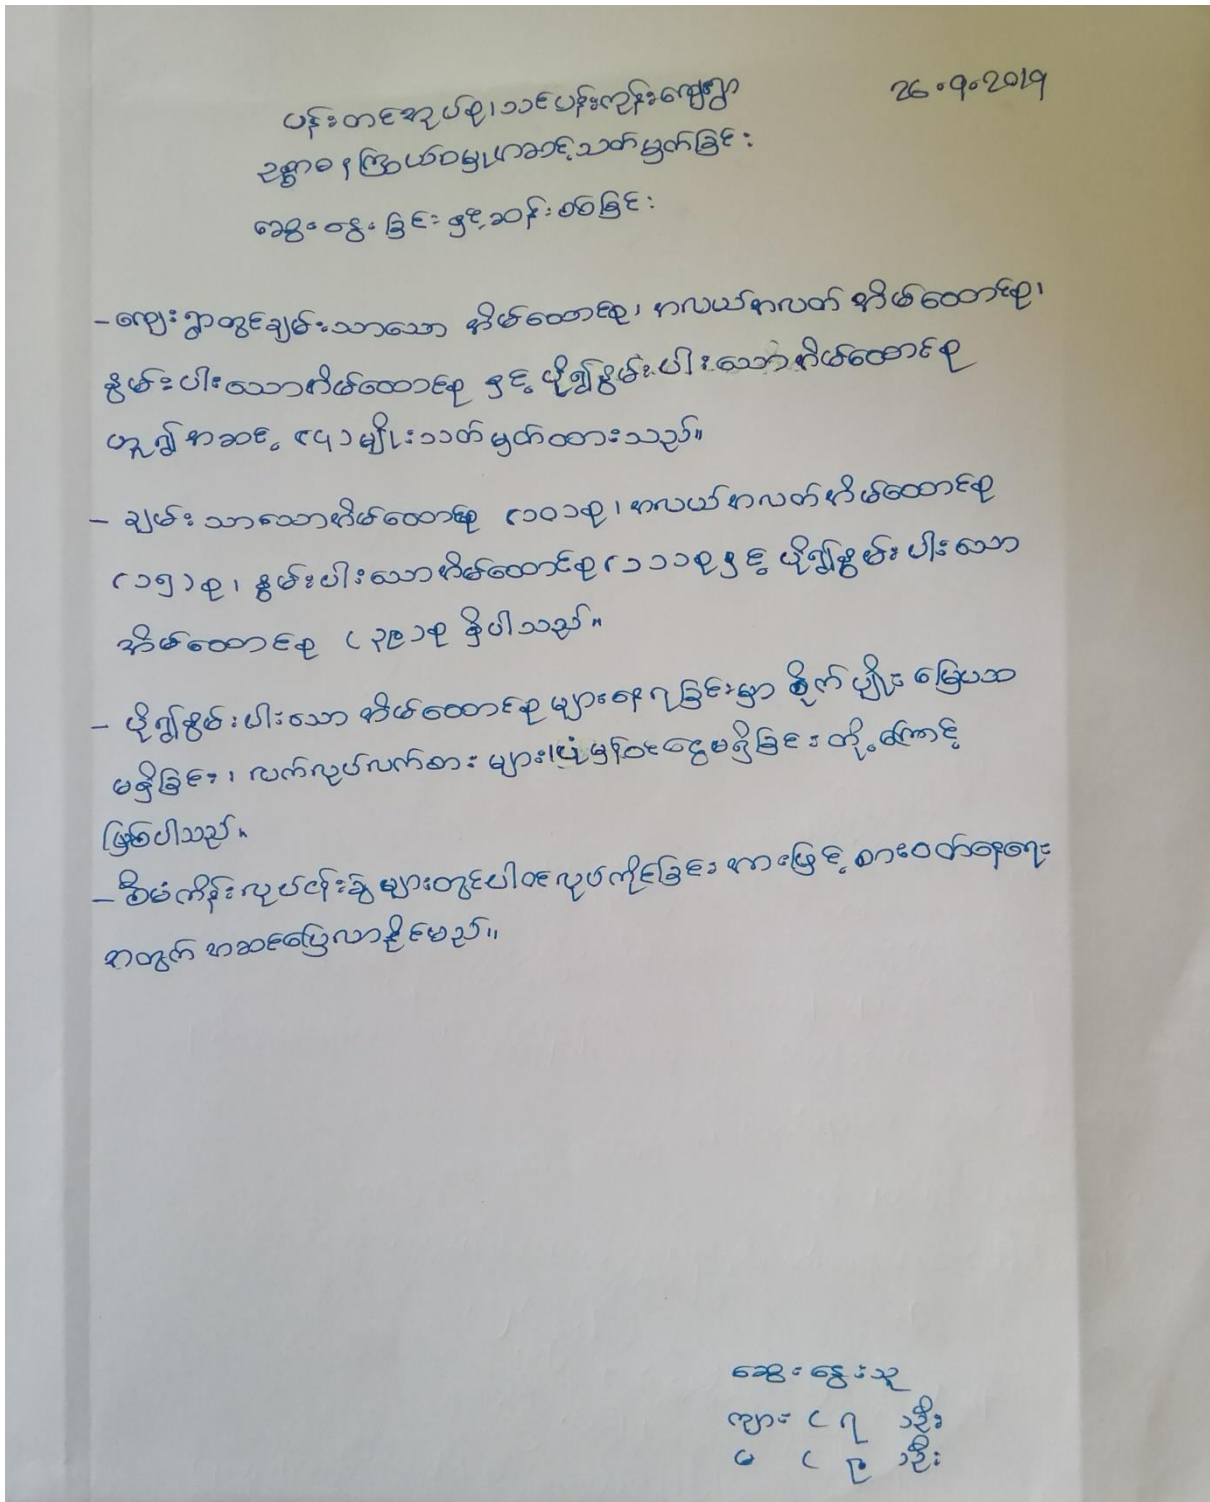 26.9.2019
ပန်းတင်အုပ်စု၊သင်ပန်းကုန်းကျေးရွာ
ဥစ္စာဓနကြွယ်ဝမှုအဆင့်သတ်မှတ်ခြင်း
ဆွေးနွေးခြင်းနှင့်ဆန်းစစ်ခြင်း
- ကျေးရွာတွင်ချမ်းသာသော အိမ်ထောင်စု၊ အလယ်အလတ် အိမ်ထောင်စု၊
နွမ်းပါးသောအိမ်ထောင်စု နှင့် ပို၍နွမ်းပါးသောအိမ်ထောင်စု
ဟူ၍အဆင့် (၄)မျိုးသတ်မှတ်ထားသည်။
- ချမ်းသာသောအိမ်ထောင်စု (၁၀)စု၊ အလယ်အလတ်အိမ်ထောင်စု
(၁၅)စု၊ နွမ်းပါးသောအိမ်ထောင်စု(၁၁)စုနှင့် ပို၍နွမ်းပါးသော
အိမ်ထောင်စု (၃၉)စု ရှိပါသည်။
- ပို၍နွမ်းပါးသော အိမ်ထောင်စုများနေရခြင်းမှာ စိုက်ပျိုးမြေမ
မရှိခြင်း၊ လက်လုပ်လက်စားများ၊ပုံမှန်ဝင်ငွေမရှိခြင်းတို့ကြောင့်
ဖြစ်ပါသည်။
- စီမံကိန်းလုပ်ငန်းခွဲများတွင်ပါဝင်လုပ်ကိုင်ခြင်းအားဖြင့် စားဝတ်နေရေး
အတွက် အဆင်ပြေလာနိုင်မည်။
ဆွေးနွေးသူ
ကျား ( ၇ )ဦး
မ ( ၉ )ဦး